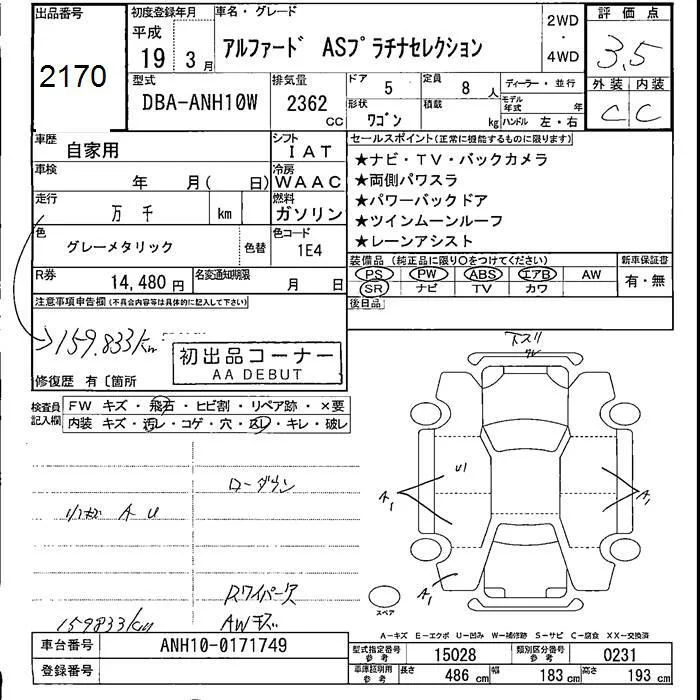 出品番号
2170
初度登録年月
平成
19年 3月
車名・グレード
アルファード ASプラチナセレクション
2WD
・
4WD
評価点
3.5
外装 内装
C C
型式
DBA-ANH10W
排気量
2362
CC
ドア 5
定員 8人
形状 ワゴン
積載 kg
ディーラー・並行
モデル年式 年
ハンドル 左・右
車歴
自家用
シフト
IAT
車検
年 月( 日)
冷房
WAAC
走行
万 千 km
燃料
ガソリン
色
グレーメタリック
色替
色コード
1E4
R券 14,480円
名変通知期限
月 日
セールスポイント(正常に機能するものに限ります)
★ナビ・TV・バックカメラ
★両側パワスラ
★パワーバックドア
★ツインムーンルーフ
★レーンアシスト
装備品 (純正品に限り○をつけてください)
PS PW ABS エアB AW
SR ナビ TV カワ
新車保証書
有・無
後日品
注意事項申告欄(不具合内容等は具体的に記入して下さい)
159.833km
初出品コーナー
AA DEBUT
修復歴 有〔箇所
検査員
記入欄
FW キズ・飛石・ヒビ割・リペア跡・×要
内装 キズ・汚レ・コゲ・穴・スレ・キレ・破レ
下スリ
キレ
ローダウン
リアゲート A U
Rワイパー欠
159833km
AWキズ
U1
A1
A1
A1
スペア
A-キズ E-エクボ U-凹み W-補修跡 S-サビ C-腐食 XX-交換済
車台番号
ANH10-0171749
登録番号
型式指定番号
参考
15028
類別区分番号
参考
0231
車庫証明用
参考
長さ 486cm
幅 183cm
高さ 193cm